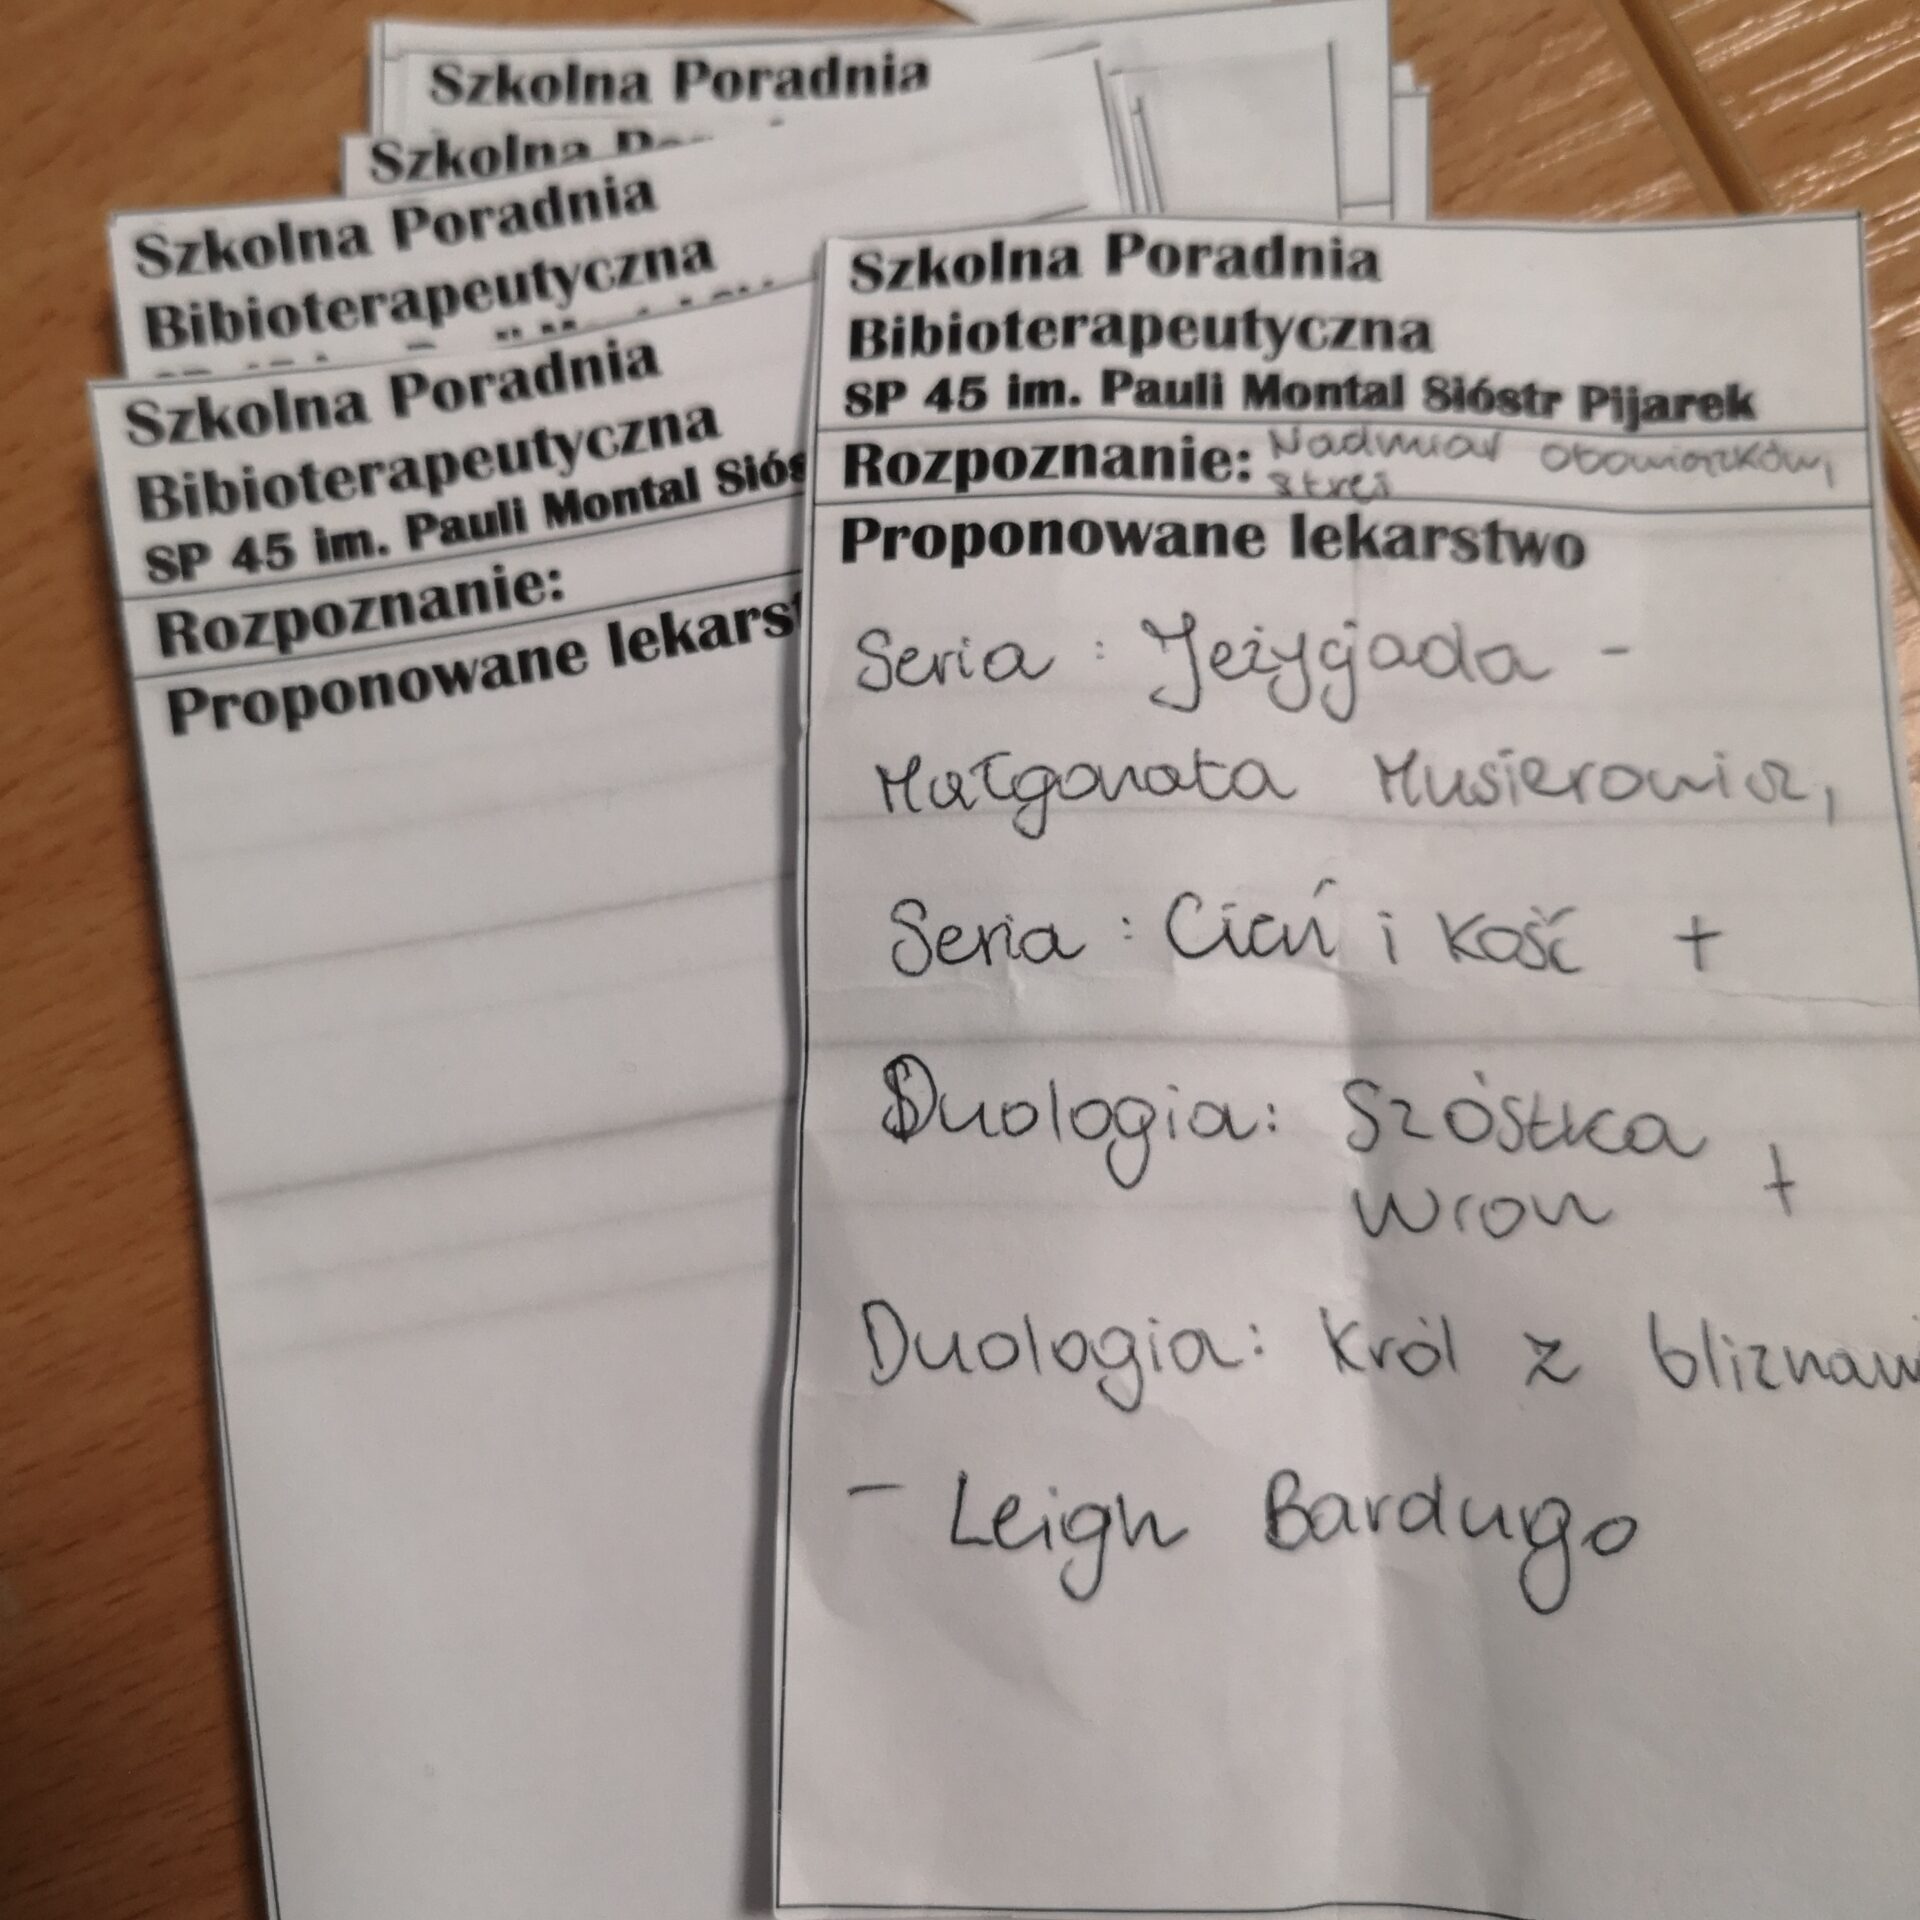 Szkolna Poradnia
Szkolna
Szkolna Poradnia
Bibioterapeutyczna
Szkolna Poradnia
Bibioterapeutyczna
SP 45 im. Pauli Montal Siós
Rozpoznanie:
Proponowane lekarst
Szkolna Poradnia
Bibioterapeutyczna
SP 45 im. Pauli Montal Sióstr Pijarek
Rozpoznanie: Nadmiar obowiązków,
stres
Proponowane lekarstwo
Seria: Jeżycjada -
Małgorzata Musierowicz,
Seria: Cień i Kość +
Duologia: Szóstka
wron +
Duologia: Król z bliznami
- Leigh Bardugo